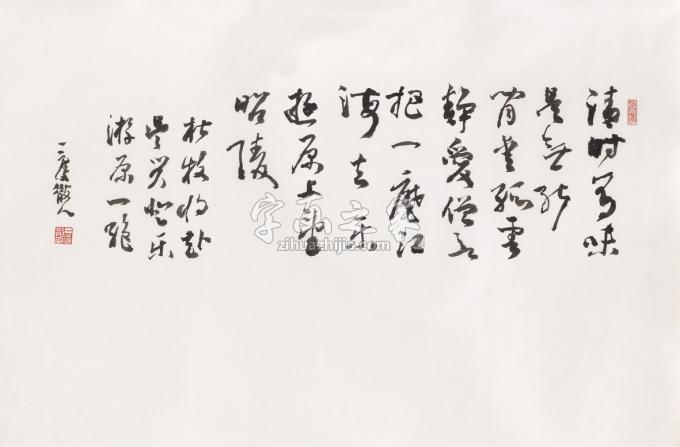 清时有味
是無能
闲爱孤雲
靜愛僧欲
把一麾江
海去乐
遊原上望
昭陵
杜牧将赴
吴兴登乐
游原一绝
散人
字画之家
zihuazhijia.com